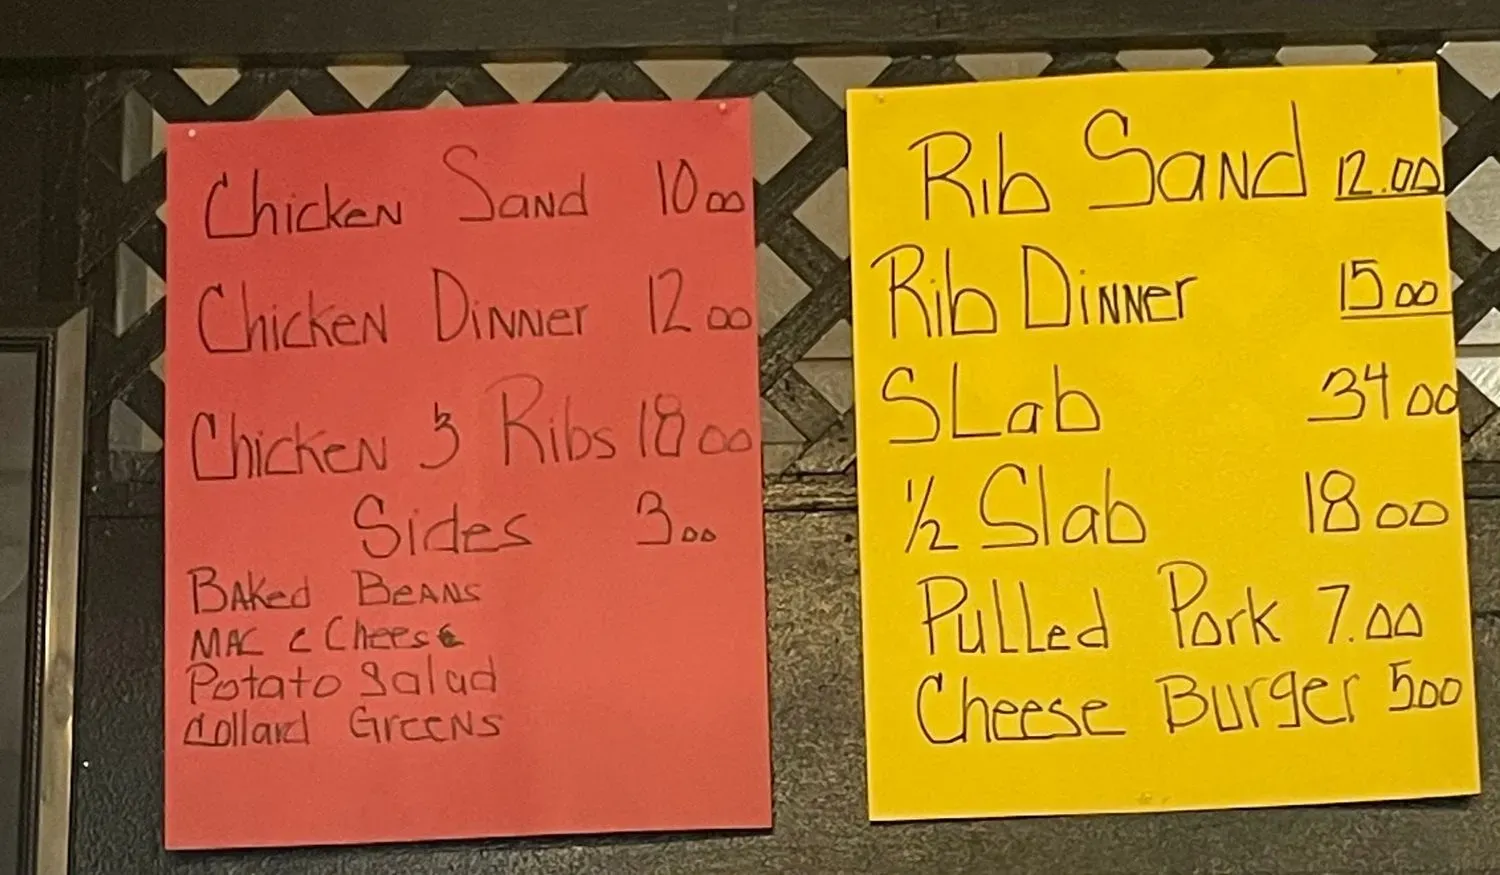 Chicken Sand 10 00
Chicken Dinner 12 00
Chicken & Ribs 18 00
Sides 3 00
Baked Beans
Mac & Cheese
Potato Salad
Collard Greens
Rib Sand 12.00
Rib Dinner 15 00
SLab 34 00
1/2 Slab 18 00
Pulled Pork 7.00
Cheese Burger 5 00